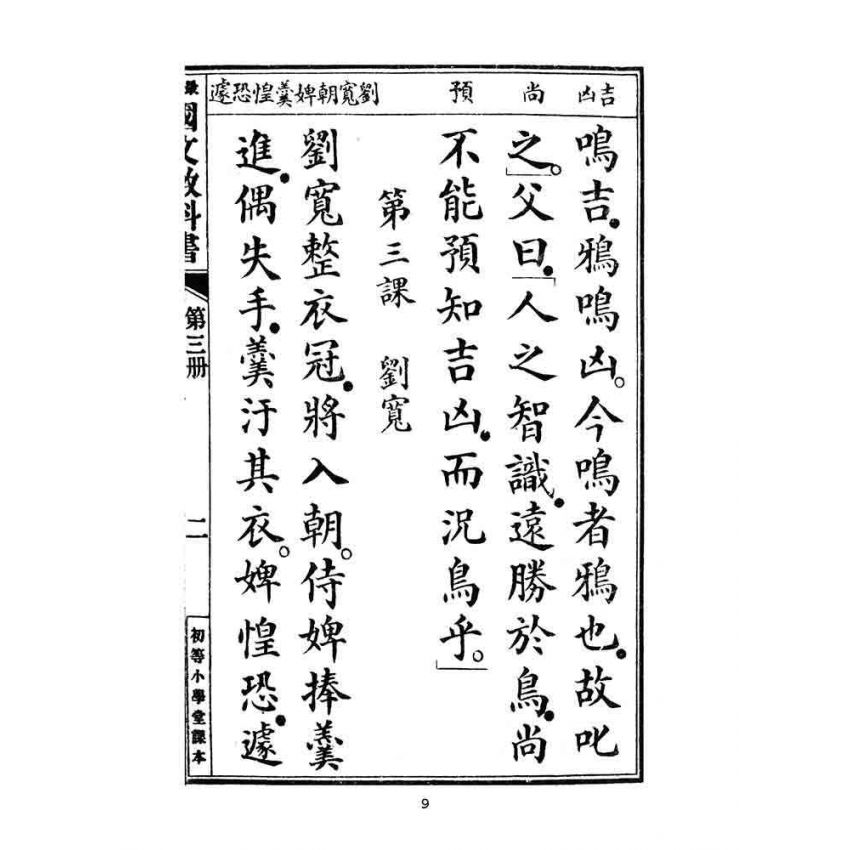 吉凶 尚 預 劉寬朝婢羹惶恐遽
鳴吉。鴉鳴凶。今鳴者鴉也。故叱
之。」父曰。「人之智識。遠勝於鳥。尚
不能預知吉凶。而況鳥乎。」
第三課 劉寬
劉寬整衣冠。將入朝。侍婢捧羹
進。偶失手。羹汙其衣。婢惶恐。遽
國文教科書 第三册 二 初等小學堂課本
9